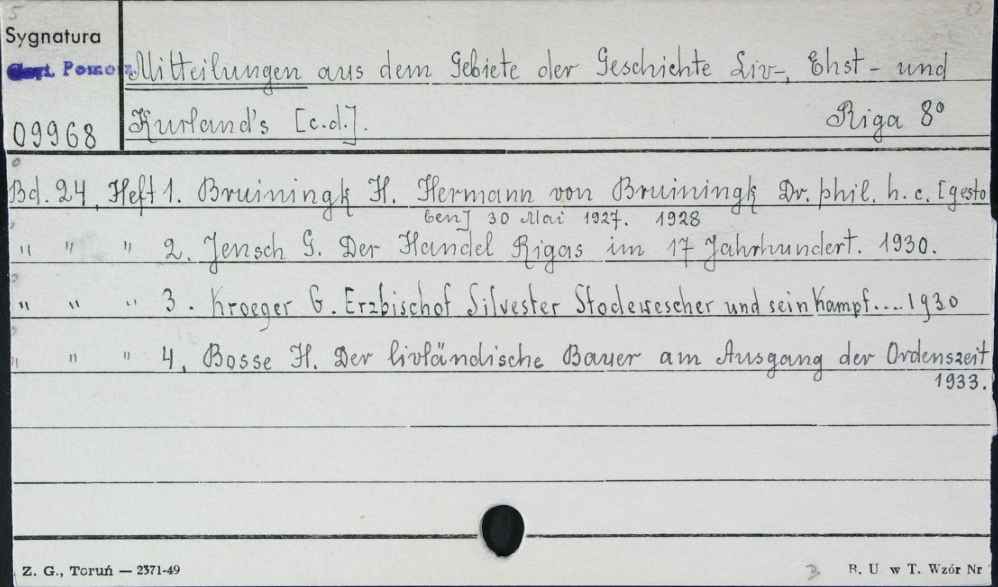 5
Sygnatura
Pomorz
09968
Mitteilungen aus dem Gebiete der Geschichte Liv-, Ehst- und
Kurland's [c.d.]. Riga 8°
Bd. 24, Heft 1. Bruiningk H. Hermann von Bruiningk Dr. phil. h. c. [gesto
ben] 30 Mai 1927. 1928
" " " 2. Jensch G. Der Handel Rigas im 17 Jahrhundert. 1930.
" " " 3. Kroeger G. Erzbischof Silvester Stodewescher und sein Kampf....1930
" " " 4. Bosse H. Der livländische Bauer am Ausgang der Ordenszeit
1933.
Z. G., Toruń — 2371-49
B. U w T. Wzór Nr